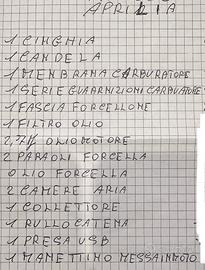 APRILIA
1 CINGHIA
1 CANDELA
1 MENBRANA CARBURATORE
1 SERIE GUARNIZIONI CARBURATORE
1 FASCIA FORCELLONE
1 FILTRO OLIO
OLIO MOTORE
2 PARAOLI FORCELLA
OLIO FORCELLA
2 CAMERE ARIA
1 COLLETTORE
1 RULLO CATENA
1 PRESA USB
1 MANETTINO MESSAINMOTO